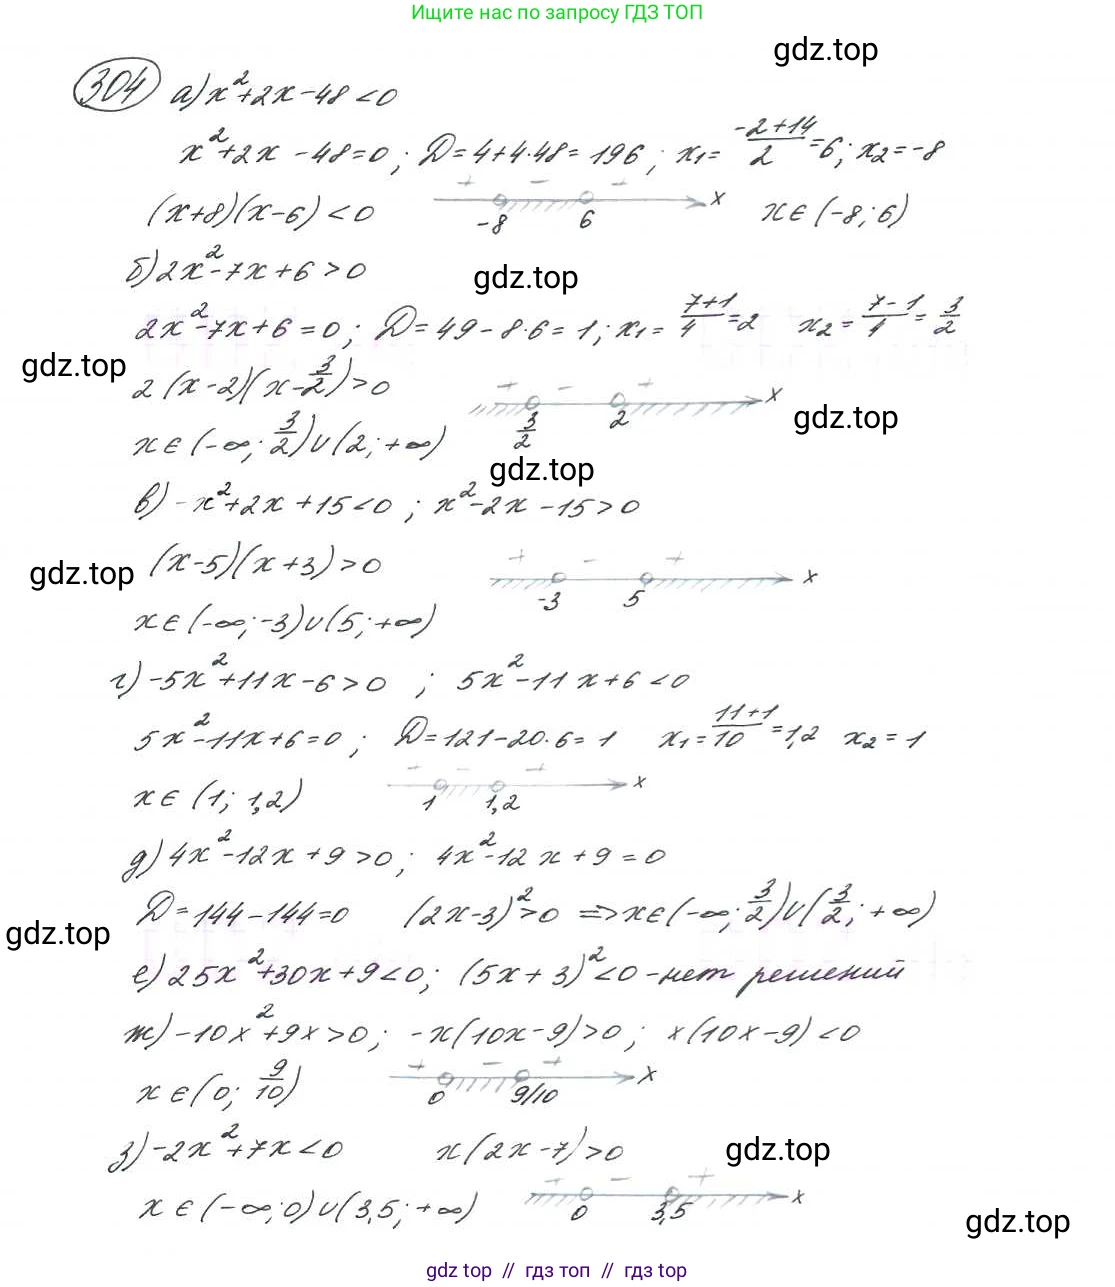 Ищите нас по запросу ГДЗ ТОП
gdz.top
304 а) x²+2x-48<0
x²+2x-48=0; D=4+4·48=196; x₁=(-2+14)/2=6; x₂=-8
(x+8)(x-6)<0 + - + -8 6 x x∈(-8;6)
б) 2x²-7x+6>0
gdz.top
2x²-7x+6=0; D=49-8·6=1; x₁=(7+1)/4=2 x₂=(7-1)/4=3/2
gdz.top
2(x-2)(x-3/2)>0 + - + 3/2 2 x
gdz.top
x∈(-∞;3/2)∪(2;+∞)
gdz.top
в) -x²+2x+15<0; x²-2x-15>0
gdz.top
(x-5)(x+3)>0 + - + -3 5 x
x∈(-∞;-3)∪(5;+∞)
г) -5x²+11x-6>0; 5x²-11x+6<0
5x²-11x+6=0; D=121-20·6=1 x₁=(11+1)/10=1,2 x₂=1
x∈(1;1,2) + - + 1 1,2 x
д) 4x²-12x+9>0; 4x²-12x+9=0
D=144-144=0 (2x-3)²>0 => x∈(-∞;3/2)∪(3/2;+∞)
gdz.top
е) 25x²+30x+9<0; (5x+3)²<0 - нет решений
ж) -10x²+9x>0; -x(10x-9)>0; x(10x-9)<0
x∈(0;9/10) + - + 0 9/10 x
з) -2x²+7x<0 x(2x-7)>0
gdz.top
x∈(-∞;0)∪(3,5;+∞) + - + 0 3,5 x
gdz.top
gdz top // гдз топ // gdz top